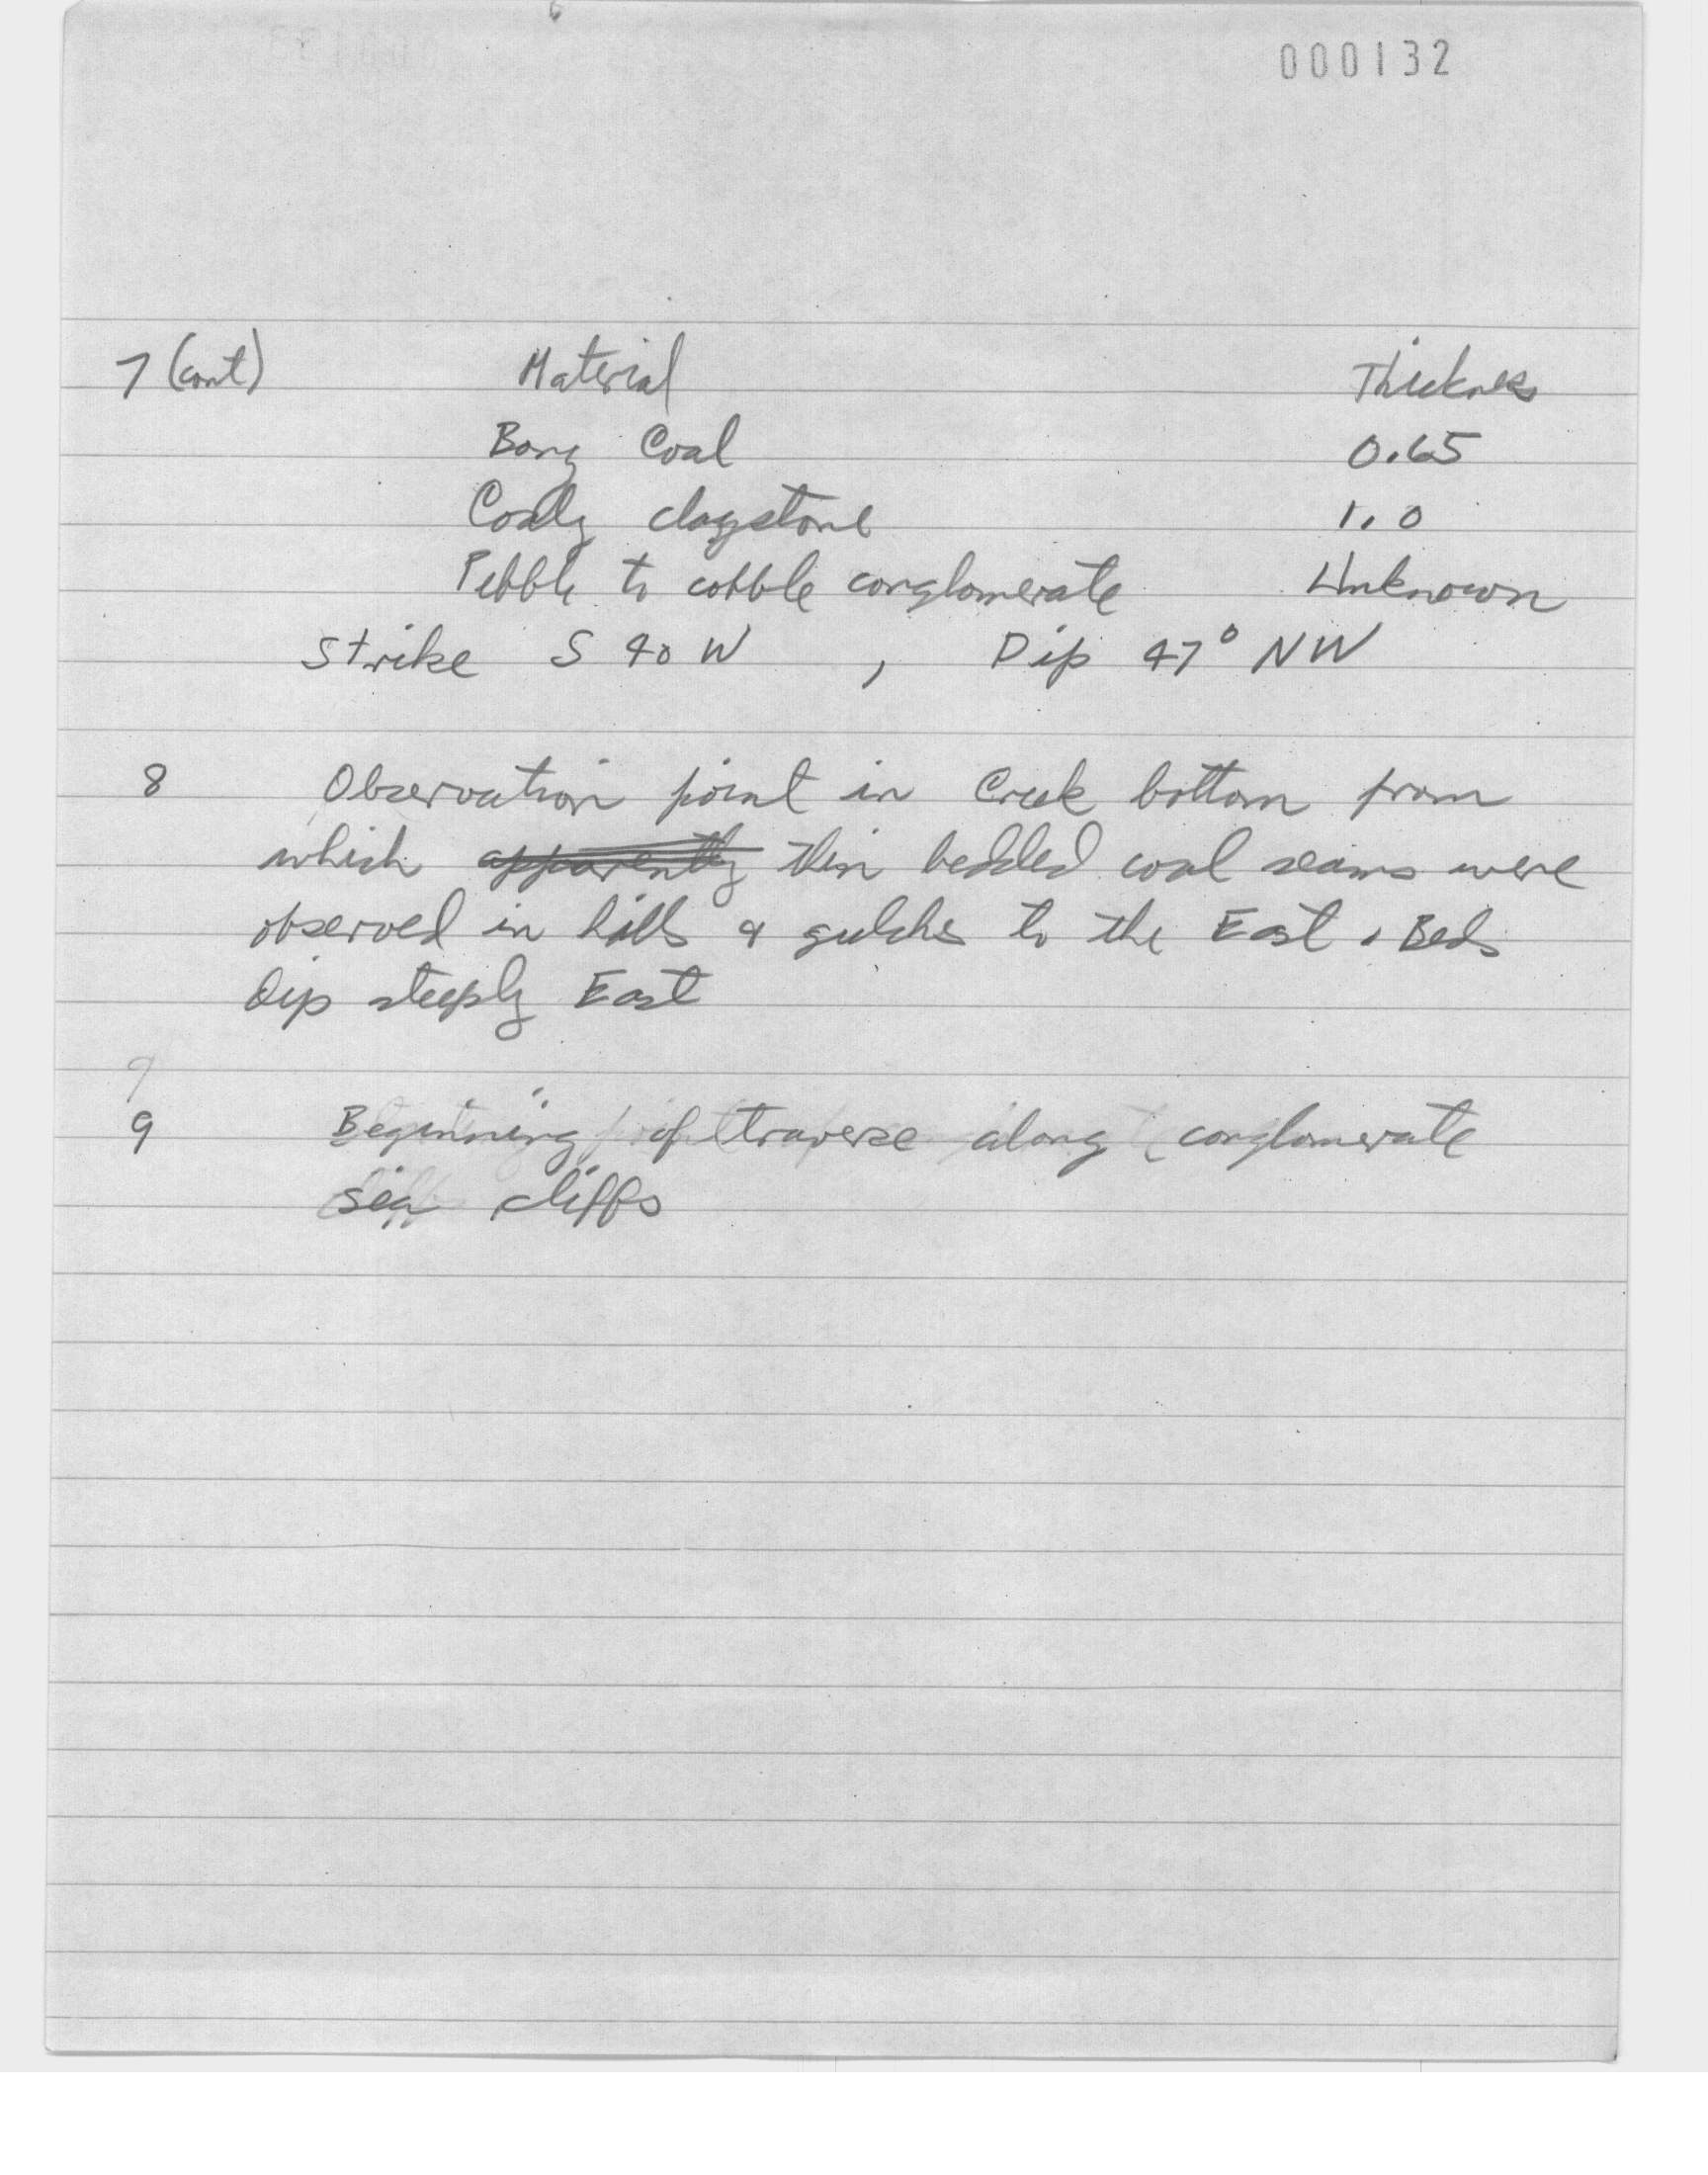 000132
7 (cont) Material Thickness
Bony Coal 0.65
Coaly claystone 1.0
Pebble to cobble conglomerate Unknown
Strike S 40 W , Dip 47° NW
8 Observation point in Creek bottom from
which apparently thin bedded coal seams were
observed in hills & gulches to the East. Beds
Dip steeply East
9 Beginning of traverse along conglomerate
sea cliffs